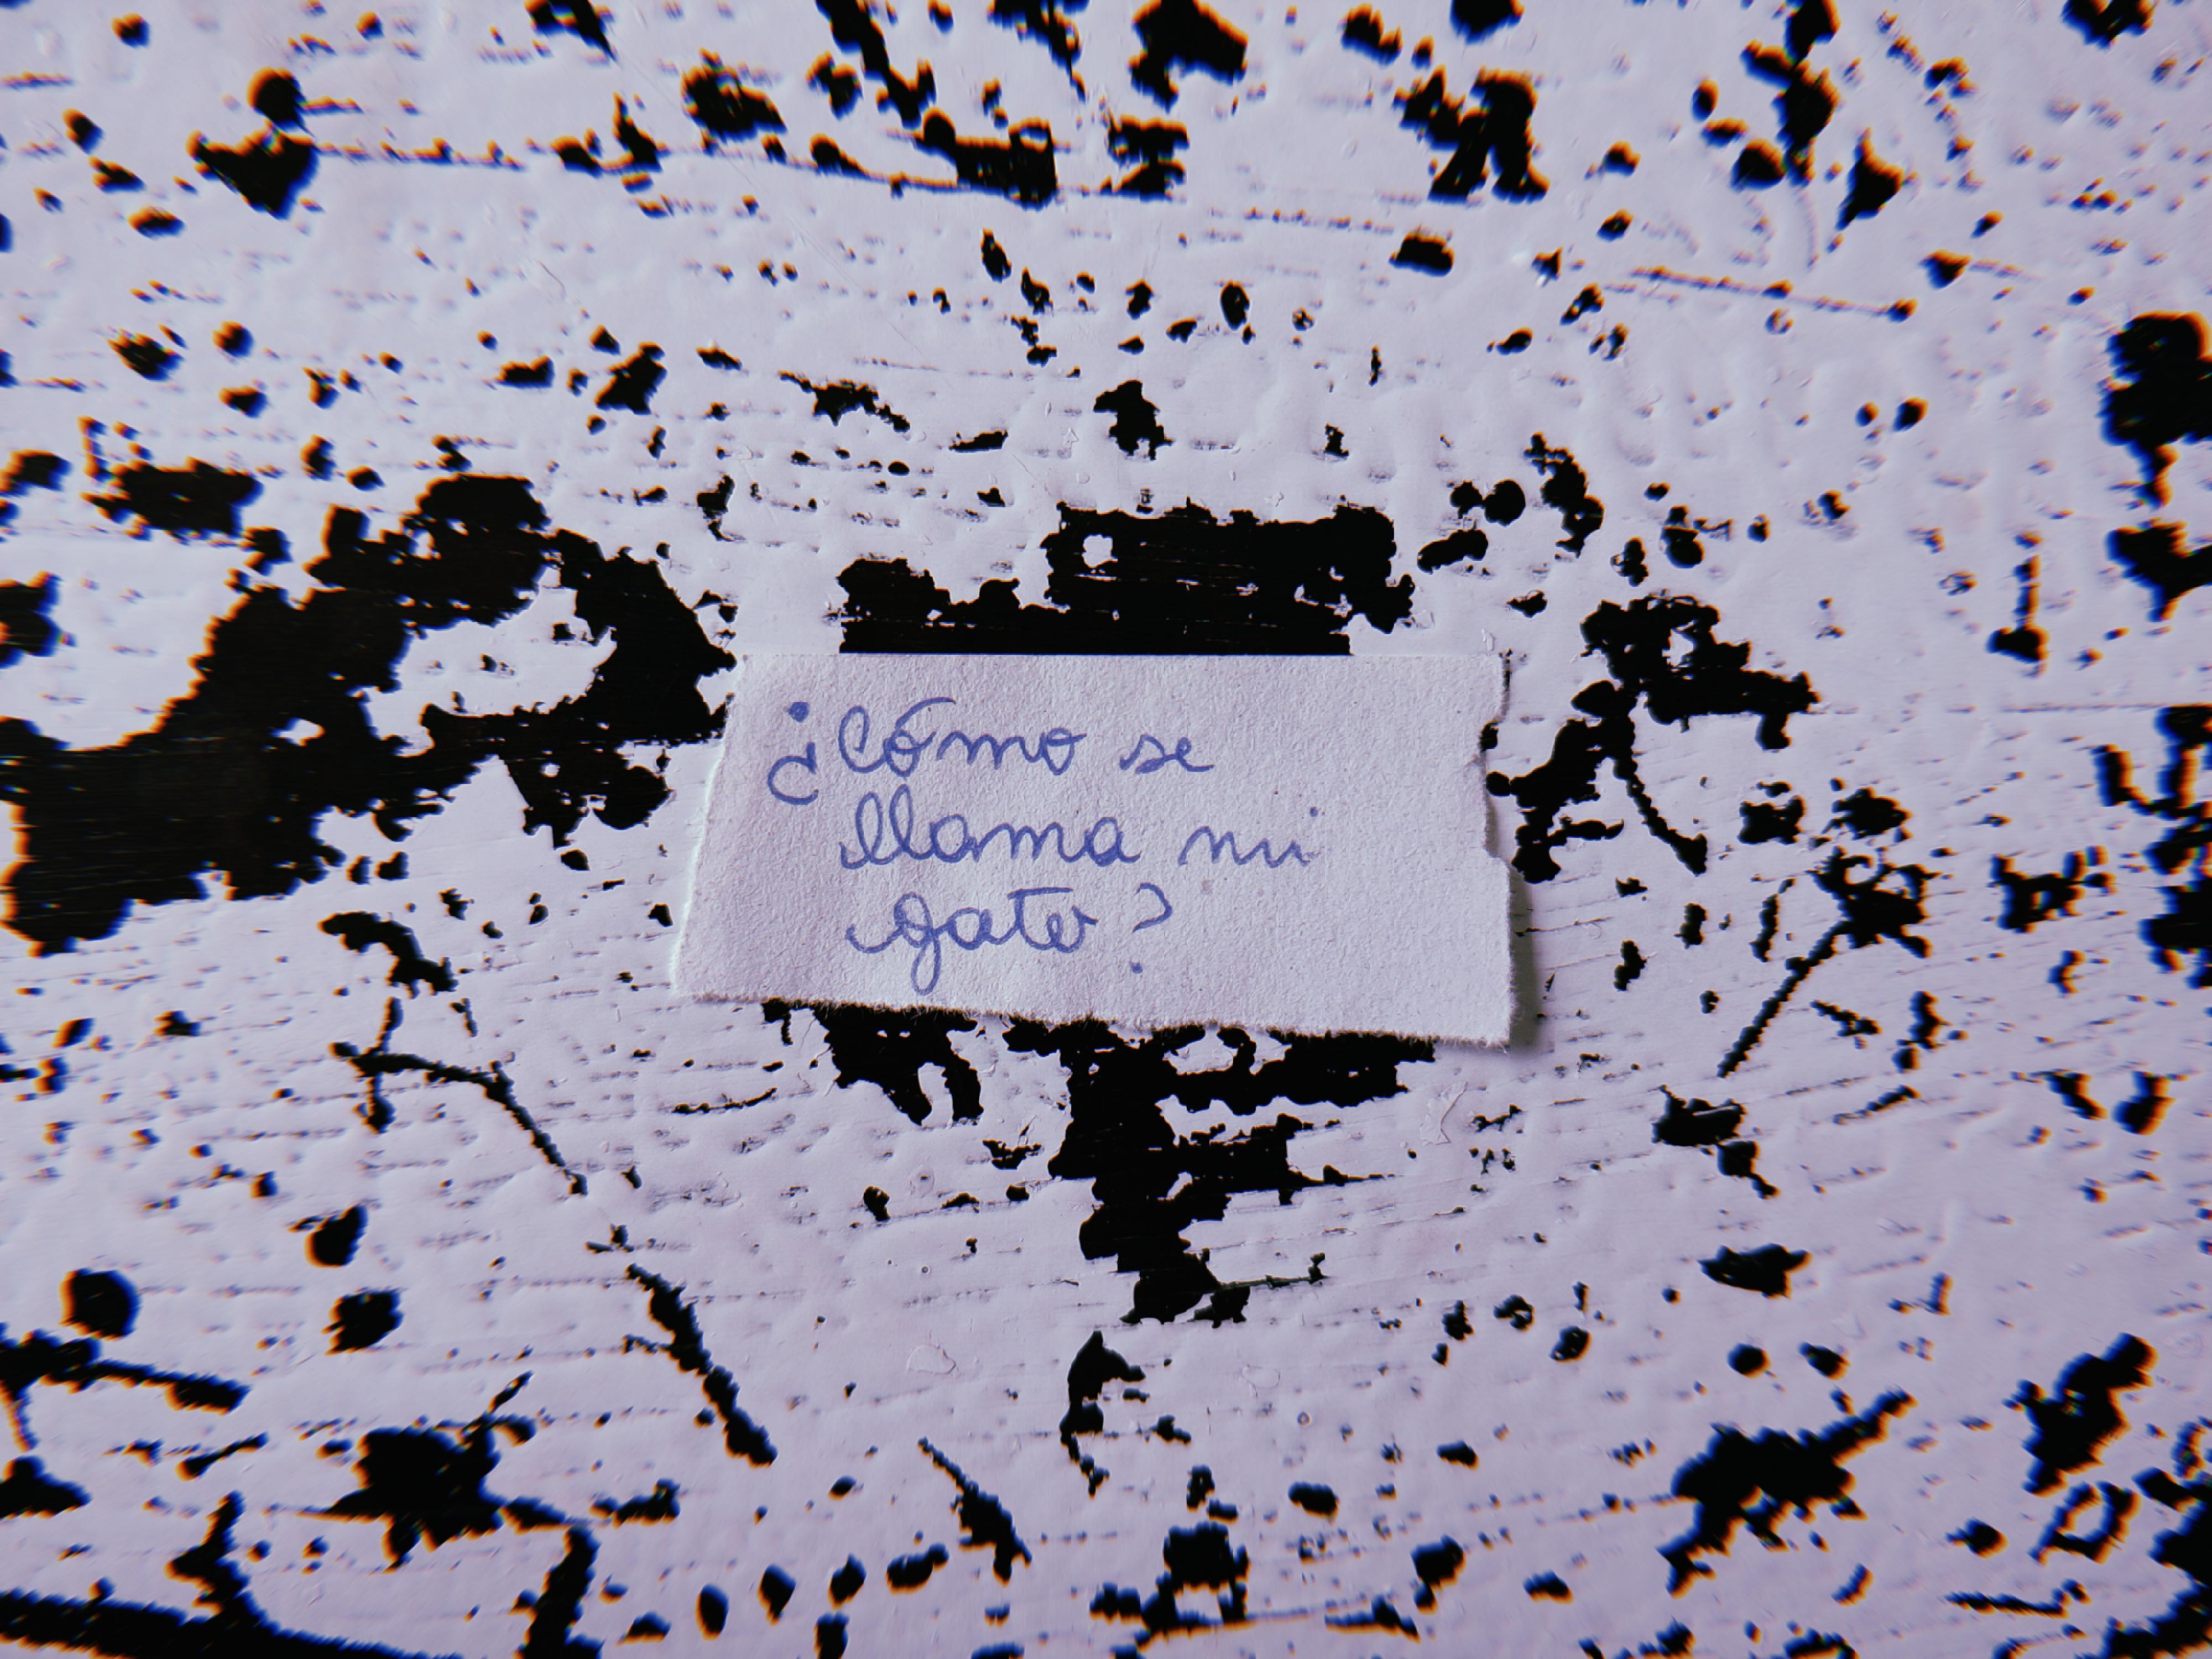 ¿Cómo se
llama mi
gato?